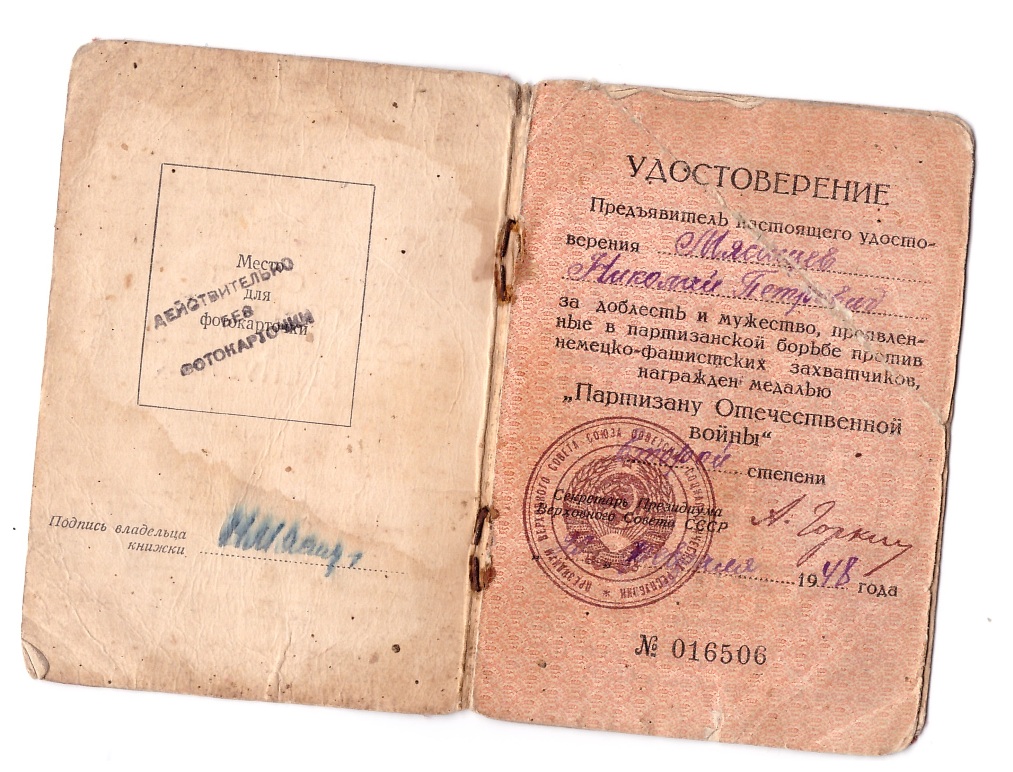 Место
для
фотокарточки
ДЕЙСТВИТЕЛЬНО
БЕЗ
ФОТОКАРТОЧКИ
Подпись владельца
книжки
УДОСТОВЕРЕНИЕ
Предъявитель настоящего удосто-
верения
Николай Петрович
за доблесть и мужество, проявлен-
ные в партизанской борьбе против
немецко-фашистских захватчиков,
награжден медалью
„Партизану Отечественной
войны“
второй степени
Секретарь Президиума
Верховного Совета СССР
А. Горкин
1948 года
№ 016506